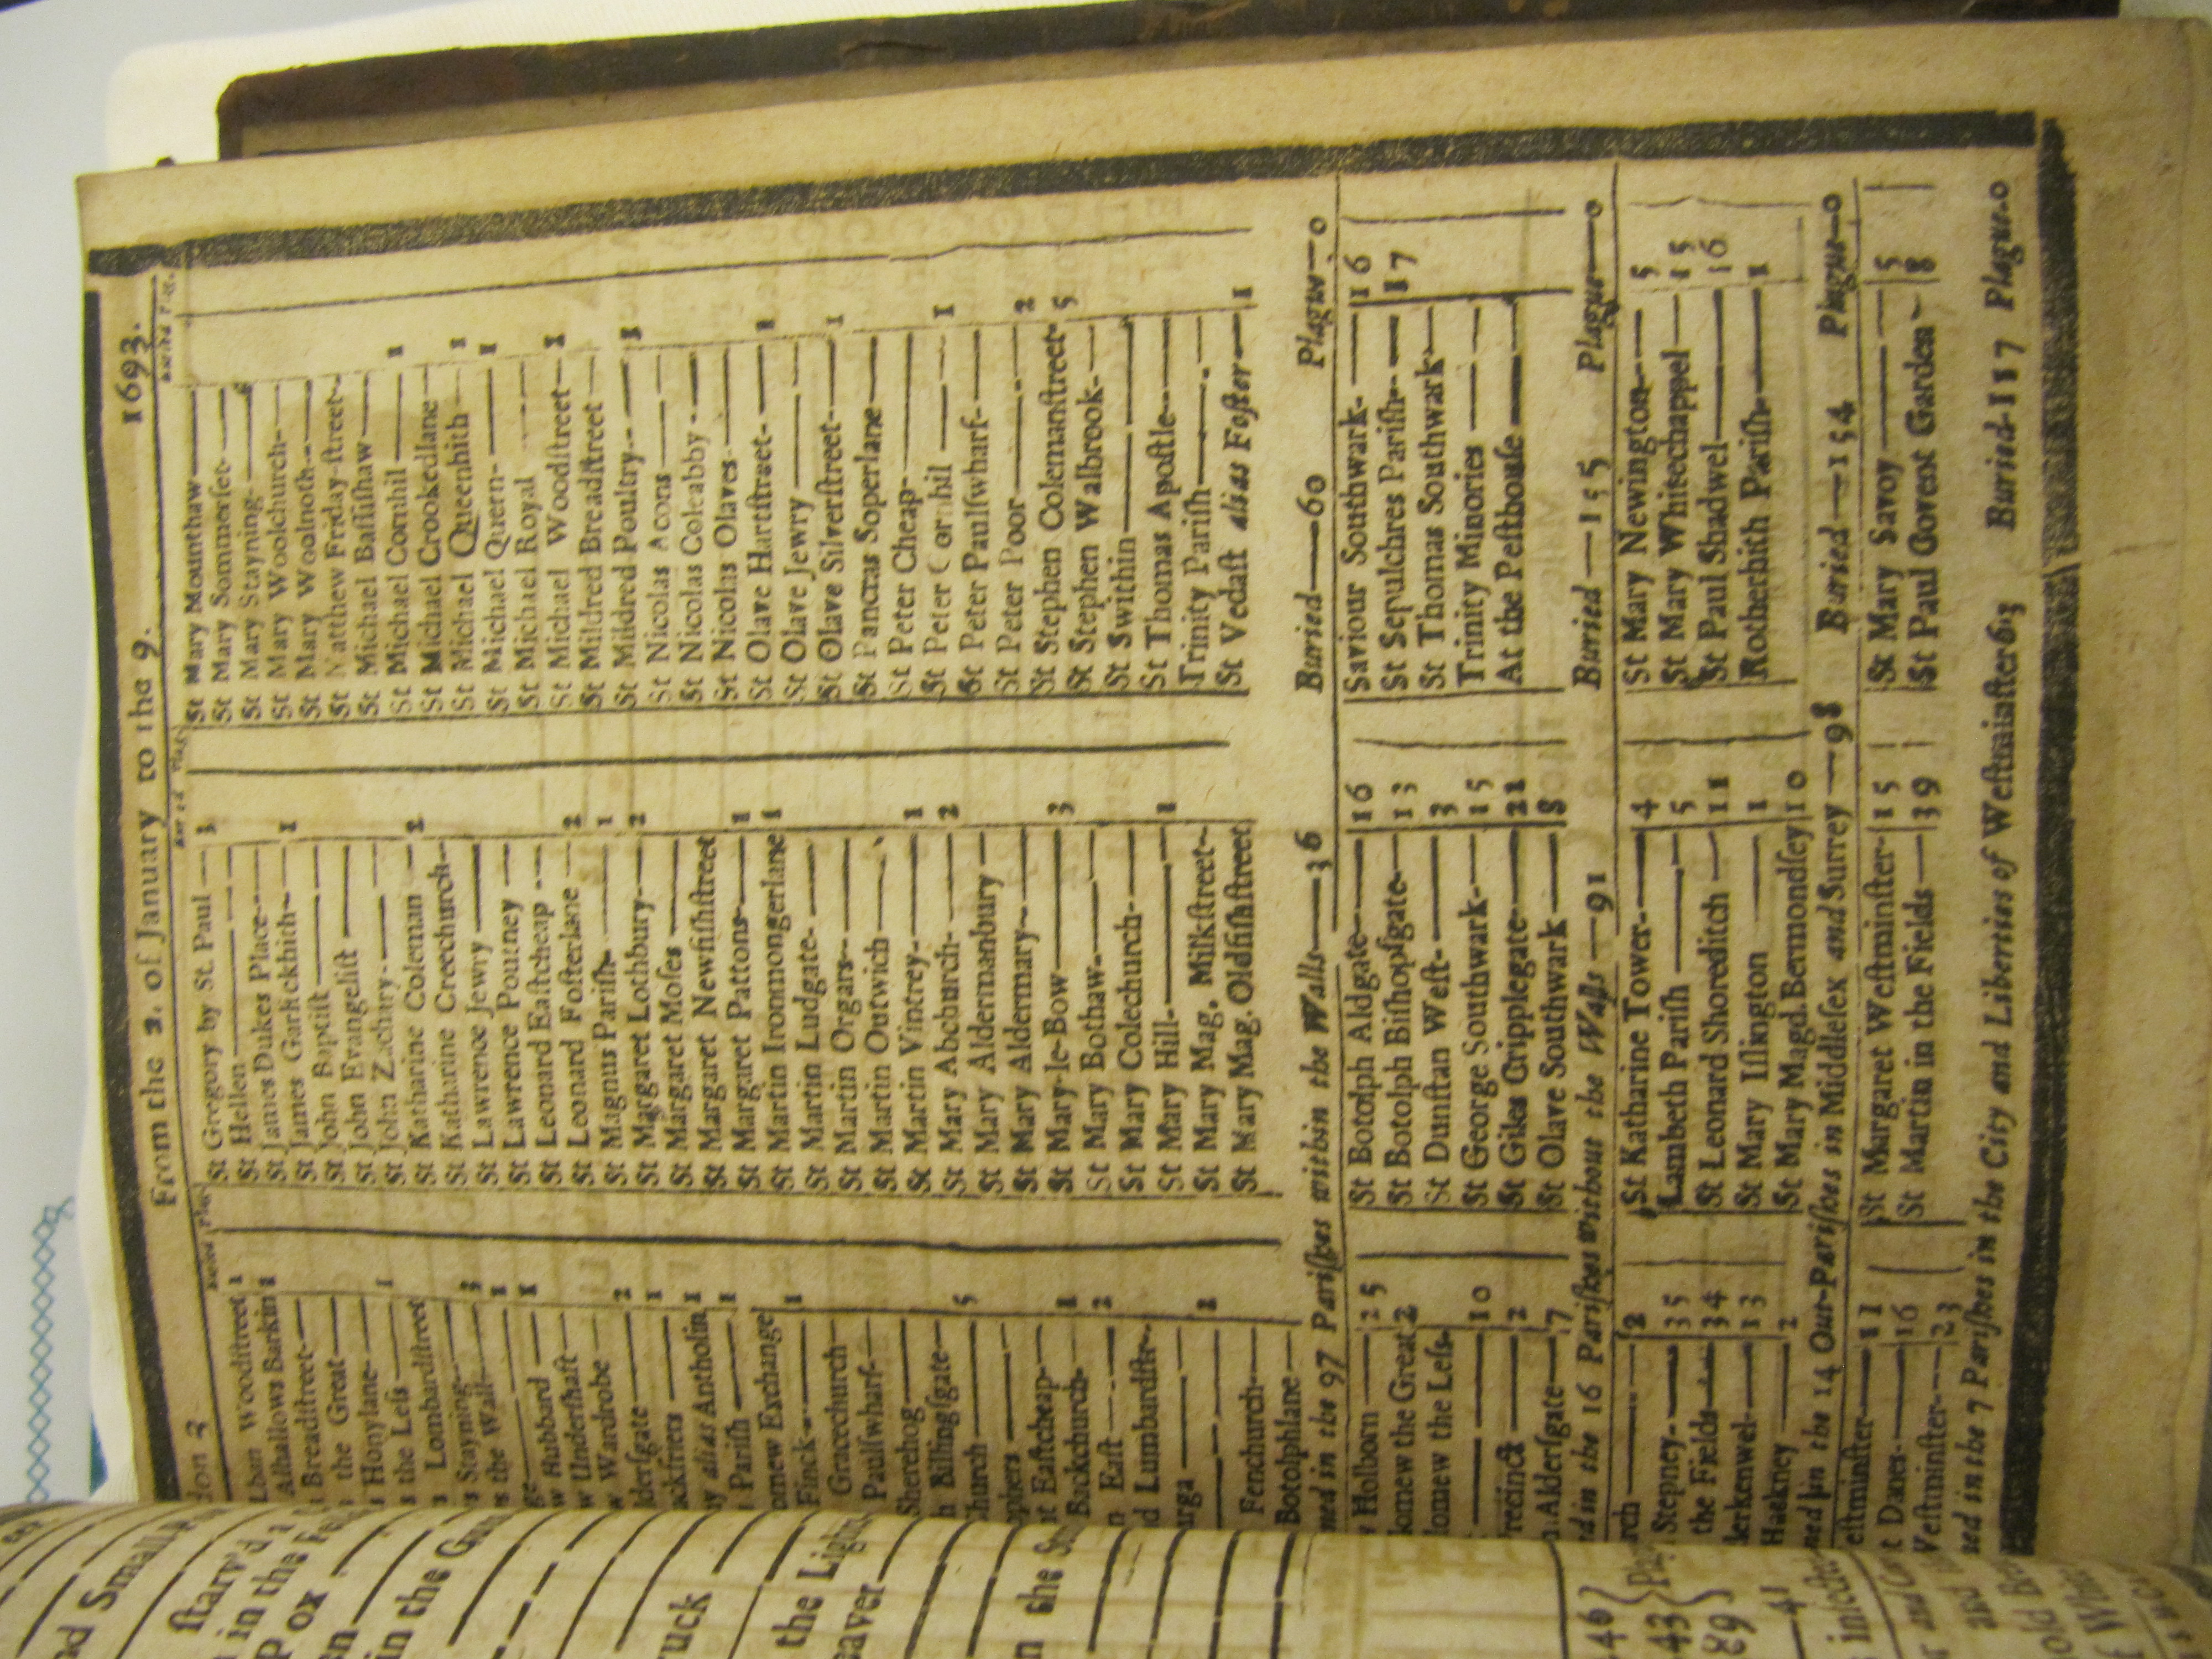 don 3
From the 2. of January to the 9.
1693.
lban Woodſtreet 1
Alhallows Barkin 1
Breadſtreet
the Great
Honylane 1
the Leſs
Lombardſtreet
Stayning 3
the Wall 1
1
w Hubbard
w Underſhaft
w Wardrobe 2
lderſgate 1
ackfriers 1
y alias Antholin 1
Pariſh
omew Exchange
Finck 1
Gracechurch
Paulſwharf
Sherehog
h Billingſgate
church 5
ophers
t Eaſtcheap 1
Backchurch 2
n Eaſt
d Lumbardſtr
urga 2
Fenchurch
Botolphlane
St Gregory by St. Paul 3
St Hellen
St James Dukes Place
St James Garlickhith 1
St John Baptiſt
St John Evangeliſt
St John Zachary
St Katharine Coleman 2
St Katharine Creechurch
St Lawrence Jewry
St Lawrence Poutney
St Leonard Eaſtcheap
St Leonard Foſterlane 2
St Magnus Pariſh 1
St Margaret Lothbury 2
St Margaret Moſes
St Margaret Newfiſhſtreet
St Margaret Pattons 1
St Martin Ironmongerlane 1
St Martin Ludgate
St Martin Orgars
St Martin Outwich
St Martin Vintrey 1
St Mary Abchurch 2
St Mary Aldermanbury
St Mary Aldermary
St Mary-le-Bow 3
St Mary Bothaw
St Mary Colechurch
St Mary Hill 1
St Mary Mag. Milkſtreet
St Mary Mag. Oldfiſhſtreet
St Mary Mounthaw
St Mary Sommerſet
St Mary Stayning
St Mary Woolchurch
St Mary Woolnoth
St Matthew Friday-ſtreet
St Michael Baſſiſhaw
St Michael Cornhil 1
St Michael Crookedlane
St Michael Queenhith 1
St Michael Quern 1
St Michael Royal
St Michael Woodſtreet 1
St Mildred Breadſtreet
St Mildred Poultry 1
St Nicolas Acons
St Nicolas Coleabby
St Nicolas Olaves
St Olave Hartſtreet 1
St Olave Jewry
St Olave Silverſtreet 1
St Pancras Soperlane
St Peter Cheap
St Peter Cornhil 1
St Peter Paulſwharf
St Peter Poor 2
St Stephen Colemanſtreet 5
St Stephen Walbrook
St Swithin
St Thomas Apoſtle
Trinity Pariſh
St Vedaſt alias Foſter 1
ned in the 97 Pariſhes within the Walls 36 Buried 60 Plague 0
Holborn 25
lomew the Great 2
lomew the Leſs
10
recinct 2
Alderſgate 7
St Botolph Aldgate 16
St Botolph Biſhopſgate 13
St Dunſtan Weſt 3
St George Southwark 15
St Giles Cripplegate 21
St Olave Southwark 8
Saviour Southwark 16
St Sepulchres Pariſh 17
St Thomas Southwark
Trinity Minories
At the Peſthouſe
d in the 16 Pariſhes without the Walls 91 Buried 155 Plague 0
rch 2
Stepney 35
the Fields 34
lerkenwel 13
Hackney 2
St Katharine Tower 4
Lambeth Pariſh 5
St Leonard Shoreditch 11
St Mary Iſlington 1
St Mary Magd. Bermondſey 10
St Mary Newington 5
St Mary Whitechappel 15
St Paul Shadwel 16
Rotherhith Pariſh 1
ned in the 14 Out-Pariſhes in Middleſex and Surrey 98 Buried 154 Plague 0
eſtminſter 11
t Danes 16
Weſtminſter 23
St Margaret Weſtminſter 15
St Martin in the Fields 39
St Mary Savoy 5
St Paul Covent Garden 8
ned in the 7 Pariſhes in the City and Liberties of Weſtminſter 63 Buried 117 Plague 0
nd Small
ſtarv'd
in the
P ox
in the
ruck
the Ligh
eaver
n the
46
43
89
41
old